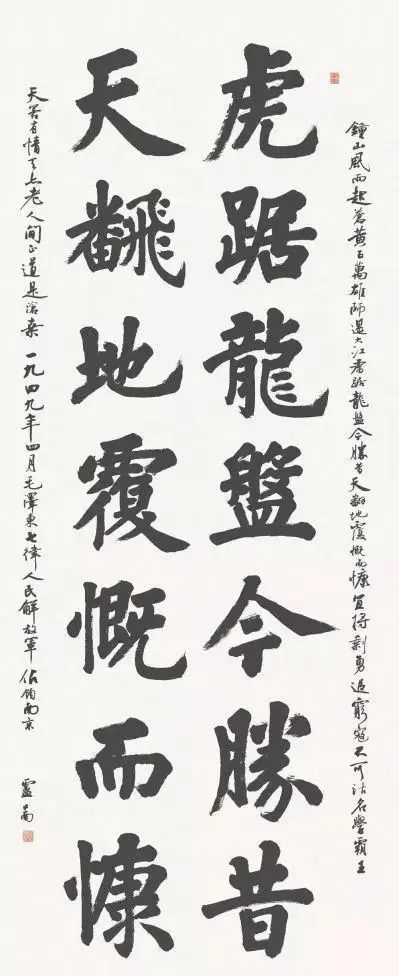 鐘山風雨起蒼黃百萬雄師過大江虎踞龍盤今勝昔天翻地覆慨而慷宜將剩勇追窮寇不可沽名學霸王
虎踞龍盤今勝昔
天飜地覆慨而慷
天若有情天亦老人間正道是滄桑 一九四九年四月毛澤東七律人民解放軍佔領南京